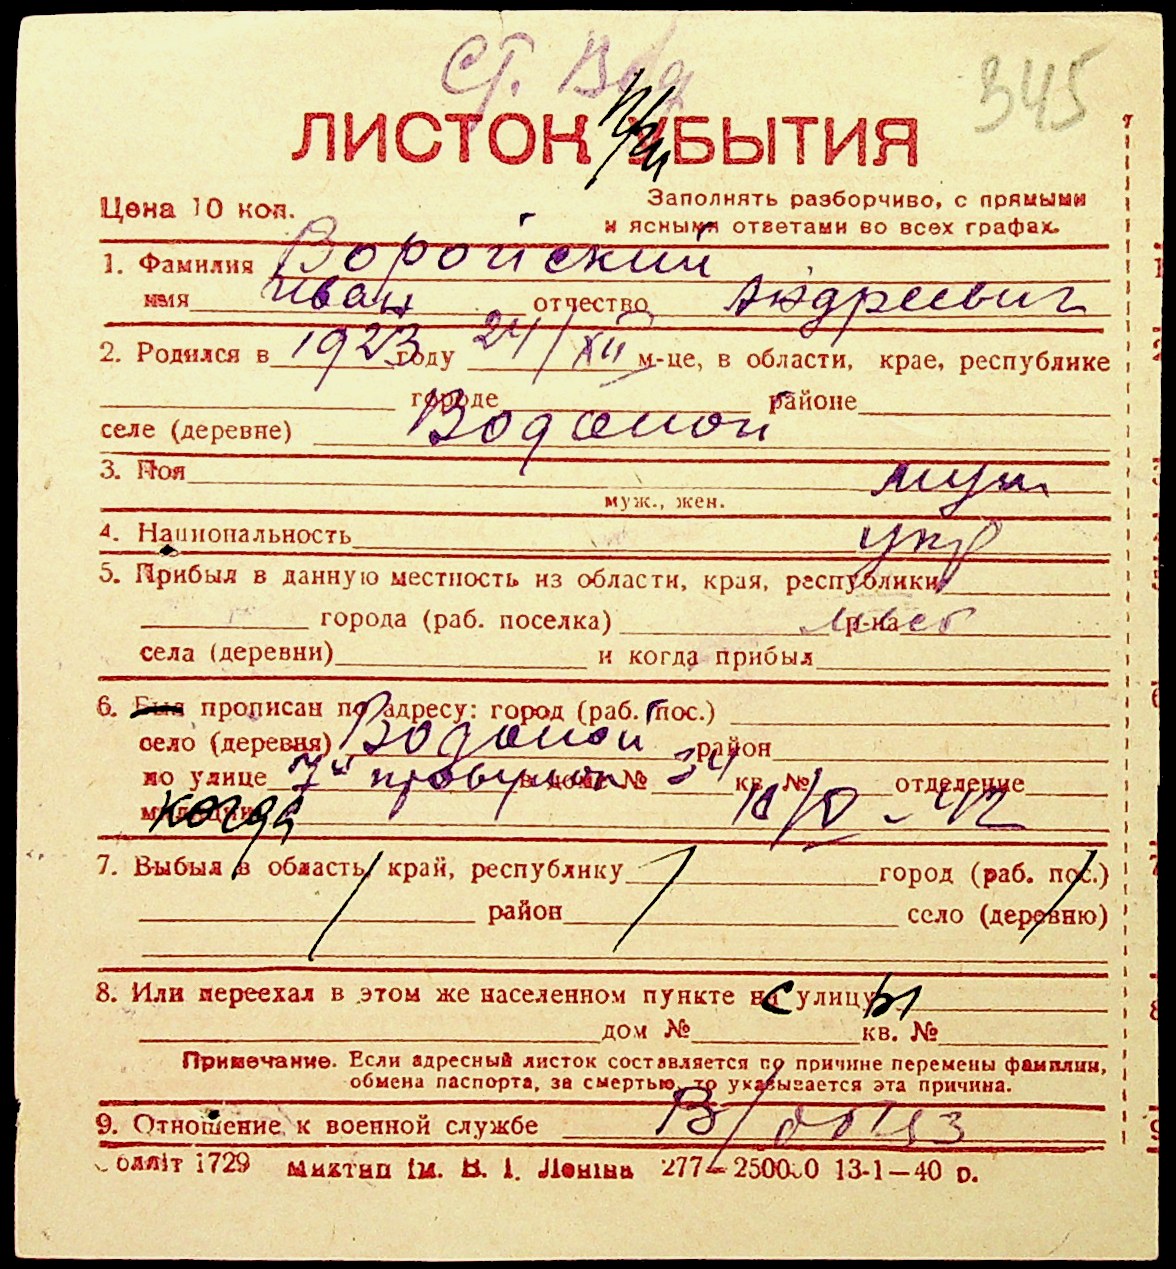 Ст. Вод
345
ЛИСТОК при УБЫТИЯ
Цена 10 коп.
Заполнять разборчиво, с прямыми
и ясными ответами во всех графах.
1. Фамилия Воройский
имя Иван отчество Андреевич
2. Родился в 1923 году 24/XII м-це, в области, крае, республике
городе районе
селе (деревне) Водопой
3. Пол муж
муж., жен.
4. Национальность укр
5. Прибыл в данную местность из области, края, республики
города (раб. поселка) р-на мест
села (деревни) и когда прибыл
6. Был прописан по адресу: город (раб. пос.)
село (деревня) Водопой район
по улице 7й в доме № 34 кв. № отделение
милиции когда 10/V - 42
7. Выбыл в область, край, республику город (раб. пос.)
район село (деревню)
8. Или переехал в этом же населенном пункте на с улицу ы
дом № кв. №
Примечание. Если адресный листок составляется по причине перемены фамилии,
обмена паспорта, за смертью, то указывается эта причина.
9. Отношение к военной службе В/обяз
блліт 1729 Миктип ім. В. І. Леніна 277—250000 13-1—40 р.